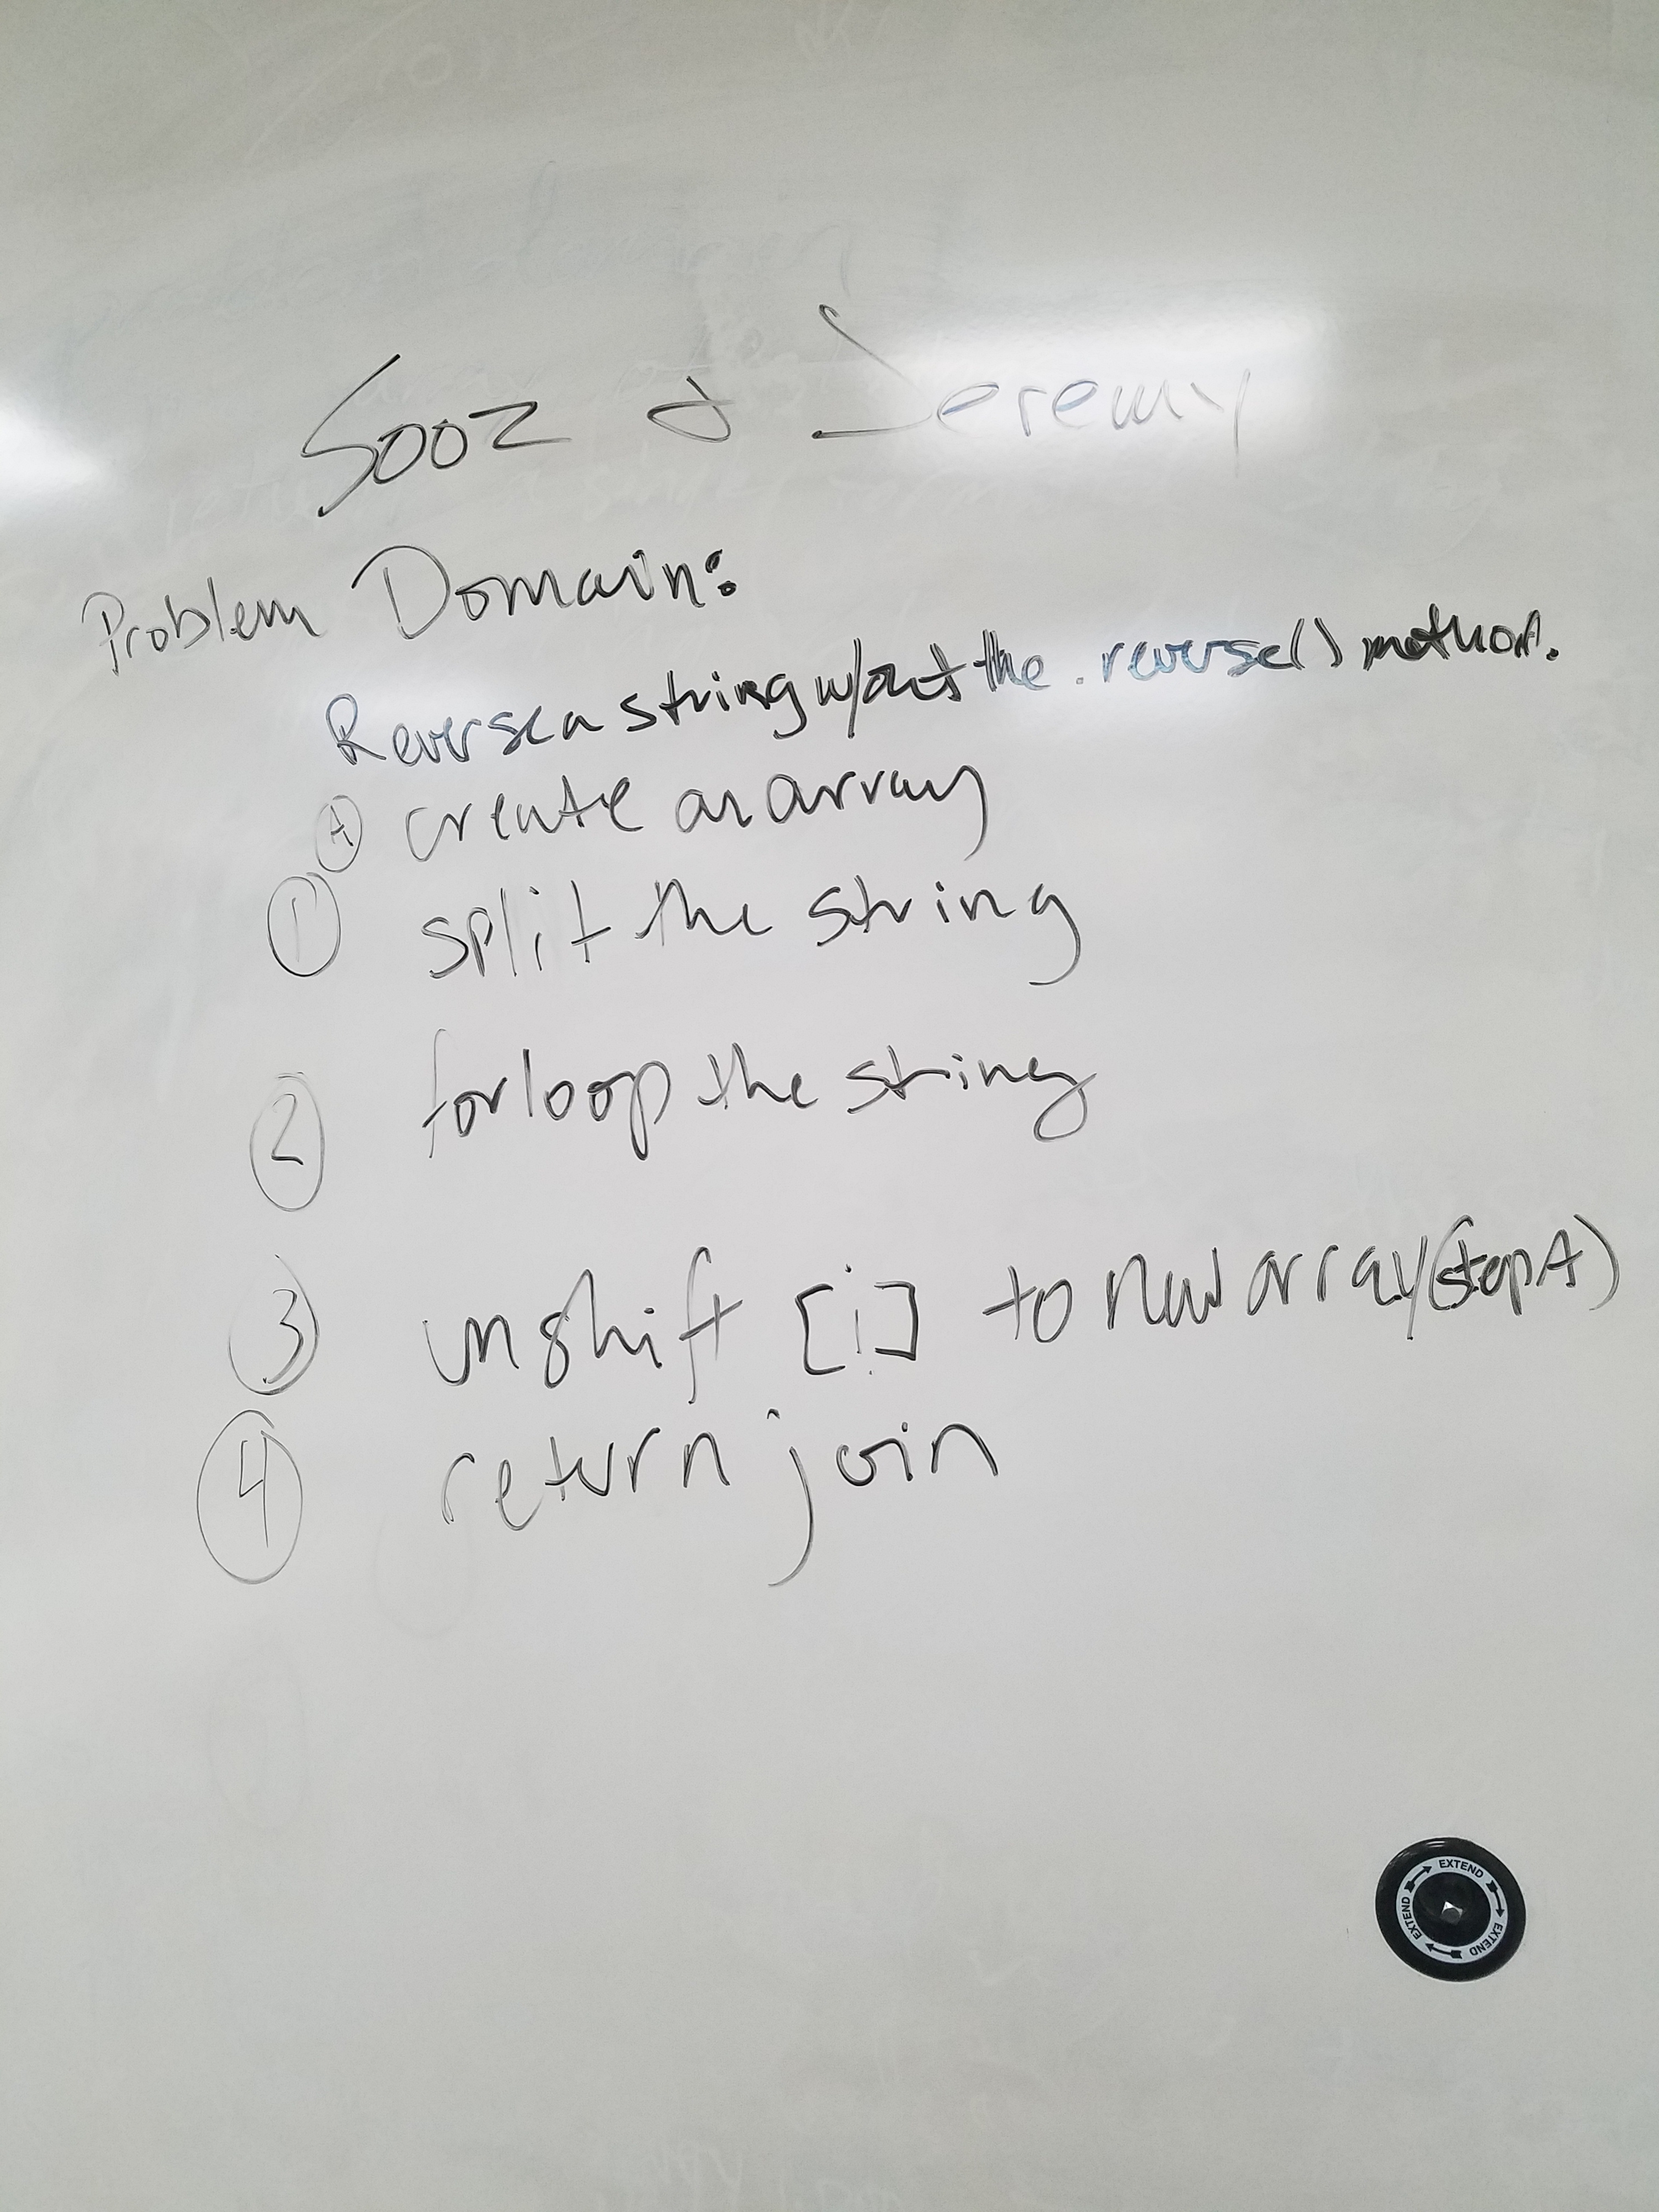 Sooz & Jeremy
Problem Domain:
Reverse a string w/out the .reverse() method.
A create an array
1 split the string
2 for loop the string
3 unshift [i] to new array (step A)
4 return join
EXTEND EXTEND EXTEND